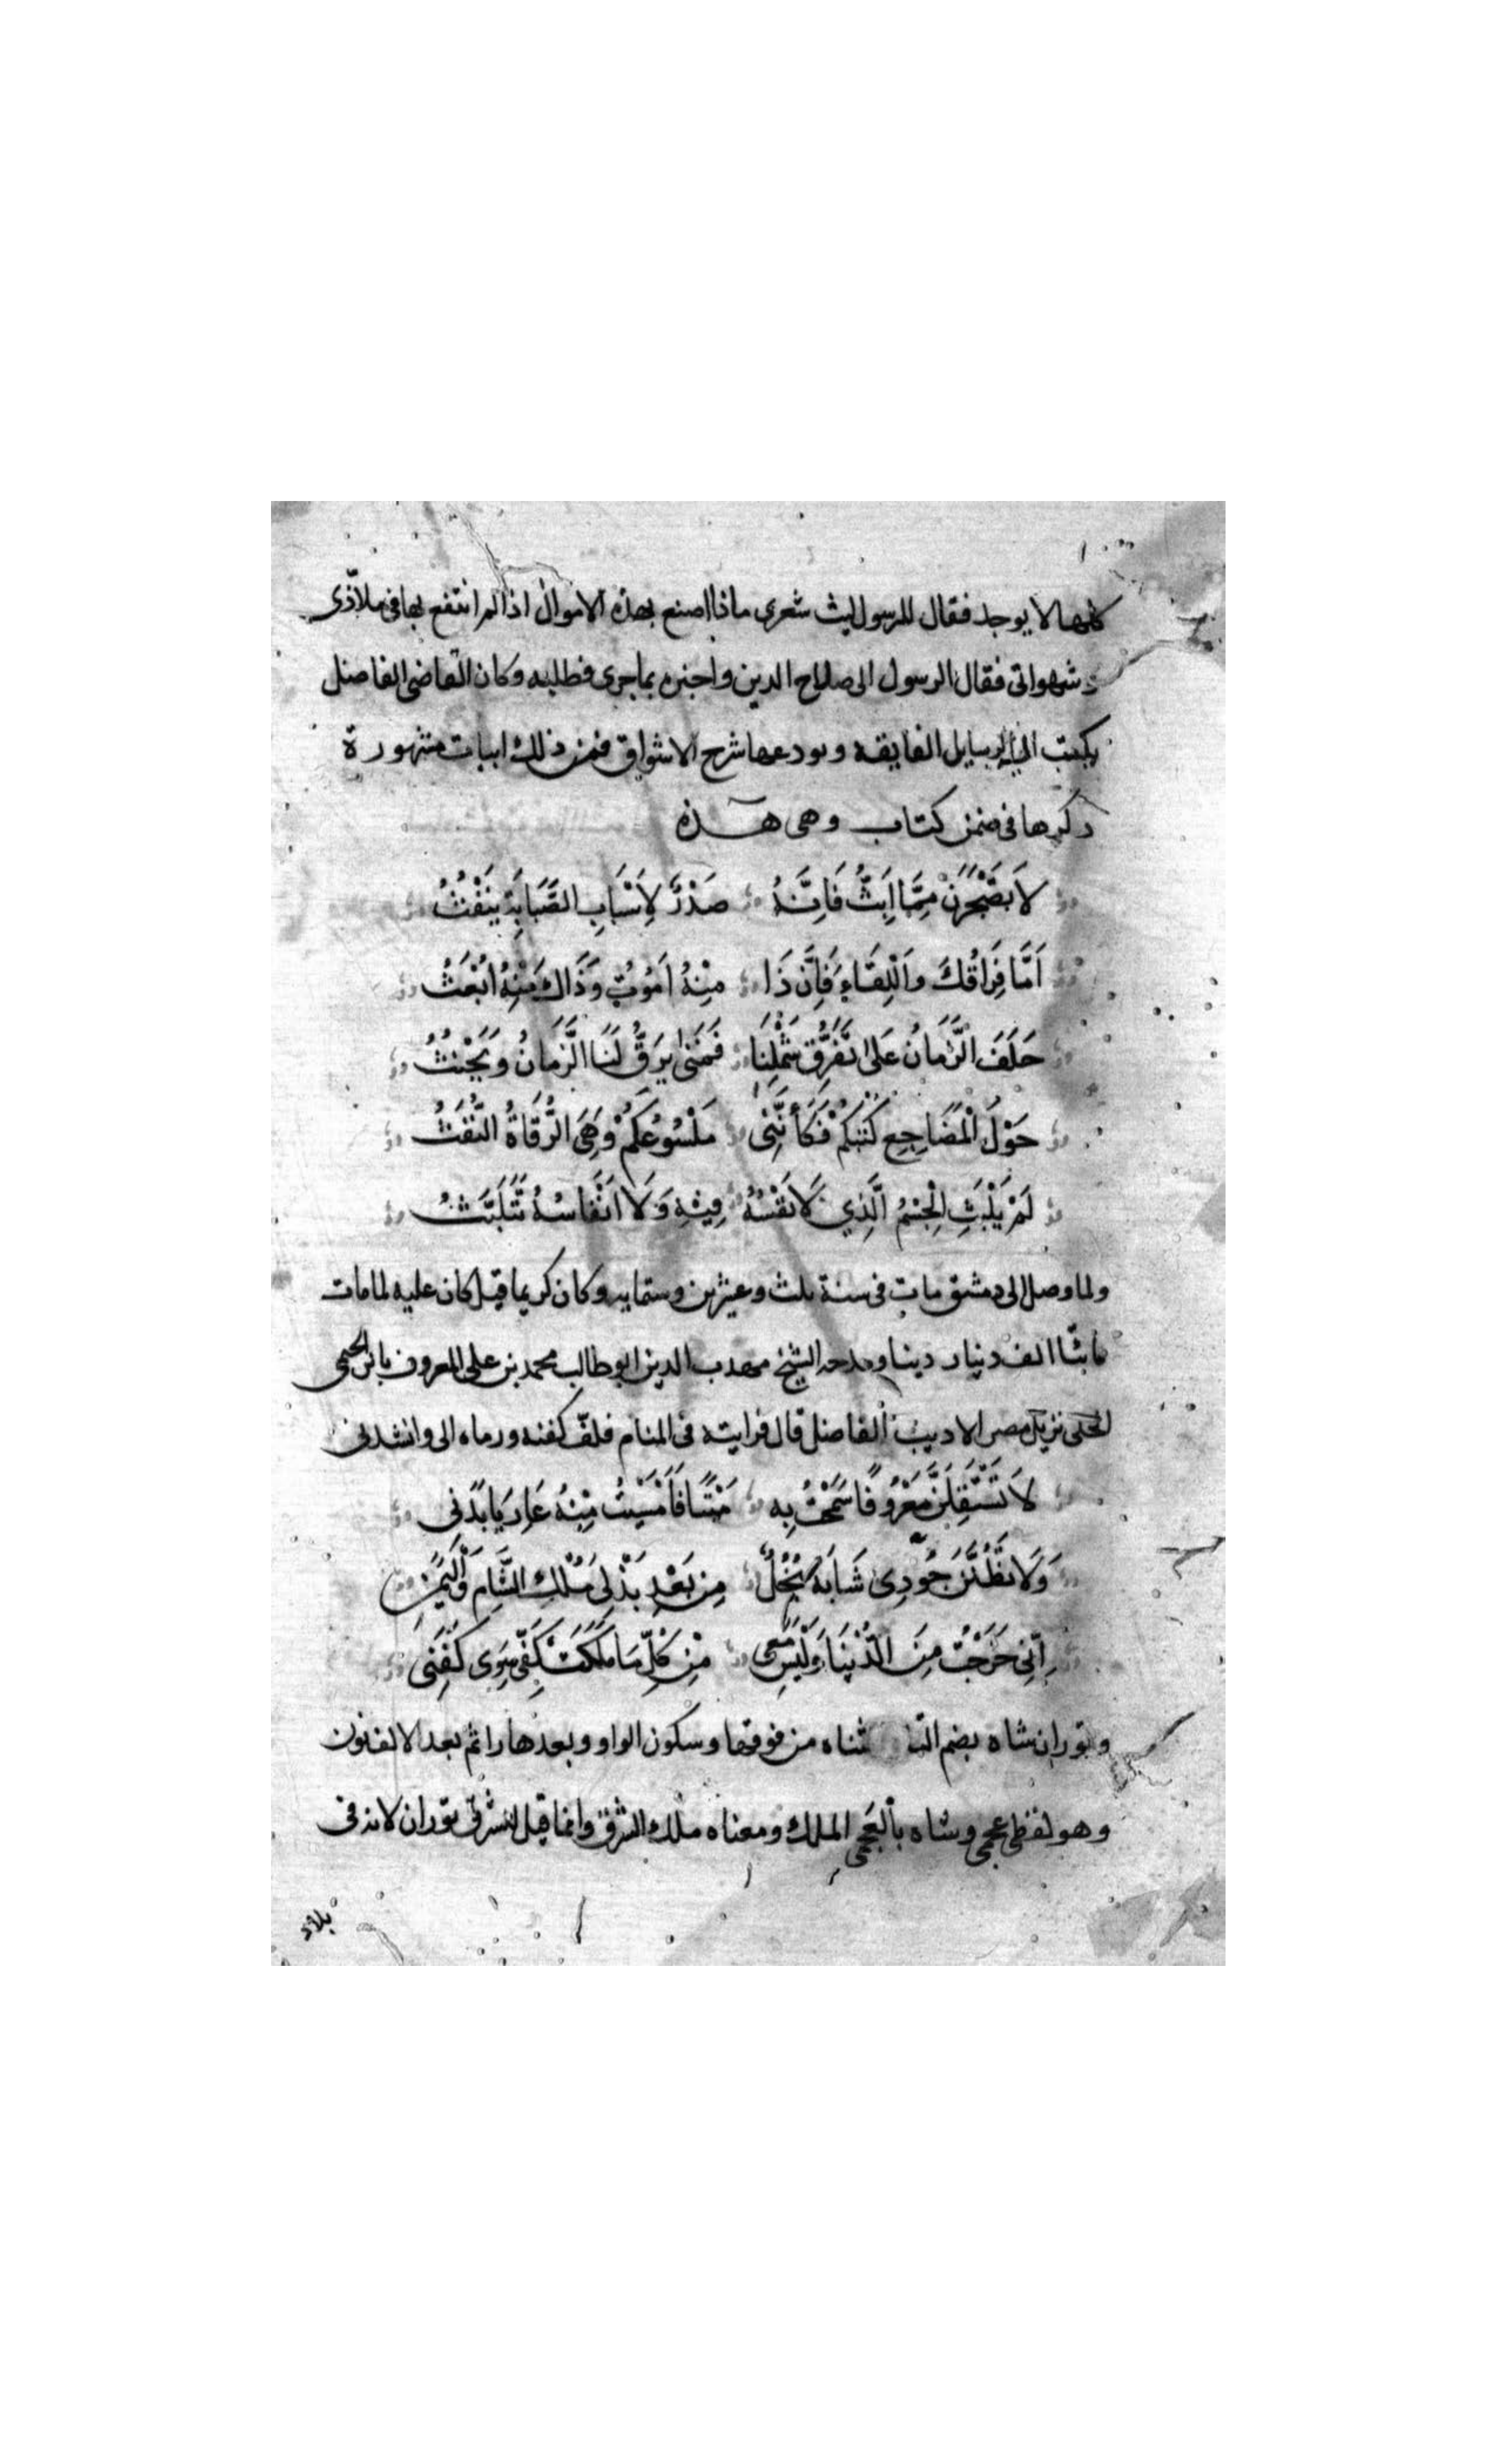 كلها لا يوجد فقال للرسول ليث شعرى ماذا اصنع بهذه الاموال اذا لم انتفع بها فى ملاذّى
و شهواتى فقال الرسول الى صلاح الدين واخبره بماجرى فطلبه وكان القاضى الفاضل
يكتب اليه الرسايل الفايقه ويودعها شرح الاشواق فمن ذلك ابيات مشهورة
ذكرها فى ضمن كتاب وهى هذه
لَا تَضْجَرَنْ مِمَّا اَبَثُّ فَاِنَّهُ صَدْرٌ لِاَسْبَابِ الصَّبَابَةِ يَنْفُثُ
اَمَّا فِرَاقُكَ وَاللِّقَاءِ فَاِنَّ ذَا مِنْهُ اَمُوْتُ وَذَاكَ مِنْهُ اُبْعَثُ
حَلَفَ الزَّمَانُ عَلَى تَفَرُّقِ شَمْلِنَا فَمَتَى يَرِقُّ لَنَا الزَّمَانُ وَيَحْنُثُ
حَوْلَ الْمَضَاجِعِ كُتْبُكُمْ فَكَأَنَّنِى مَلْسُوعُكُمْ وَهِىَ الرُّقَاةُ النُّفَّثُ
لَمْ يَلْبَثِ الْجِسْمُ الَّذِي لَا نَفْسُهُ فِيْهِ وَلَا اَنْفَاسُهُ تَتَلَبَّثُ
ولما وصل الى دمشق مات فى سنة ثلث وعشرين وستمايه وكان كريما قيل كان عليه لما مات
مائتا الف دينار دينا ومدحه الشيخ مهدب الدين ابو طالب محمد بن على المعروف بابن الخيمى
الحلى نزيل مصر الاديب الفاضل قال فرايته فى المنام فلفّ كفنه ورماه الى وانشدنى
لَا تَسْتَقِلَنَّ مَعْرُوفًا سَمَحْتُ بِهِ مَيْتًا فَاَمْسَيْتُ مِنْهُ عَارِيًا بَدَنِى
وَلَا تَظُنَّنَ جُوْدِى شَابَهُ بُخُلٌ مِنْ بَعْدِ بَذْلِى مُلْكِ الشَّامِ وَالْيَمَنِ
اِنِّى خَرَجْتُ مِنَ الدُّنْيَا وَلَيْسَ مَعِى مِنْ كُلِّ مَا مَلَكَتْ كَفِّى سِوَى كَفَنِى
وتوران شاه بضم التا مثناه من فوقها وسكون الواو وبعدها را ثم بعد الالف نون
وهو لفظ عجمى وشاه بالعجمى الملك ومعناه ملك الشرق وانما قيل الشرق توران لانه فى
بلاد